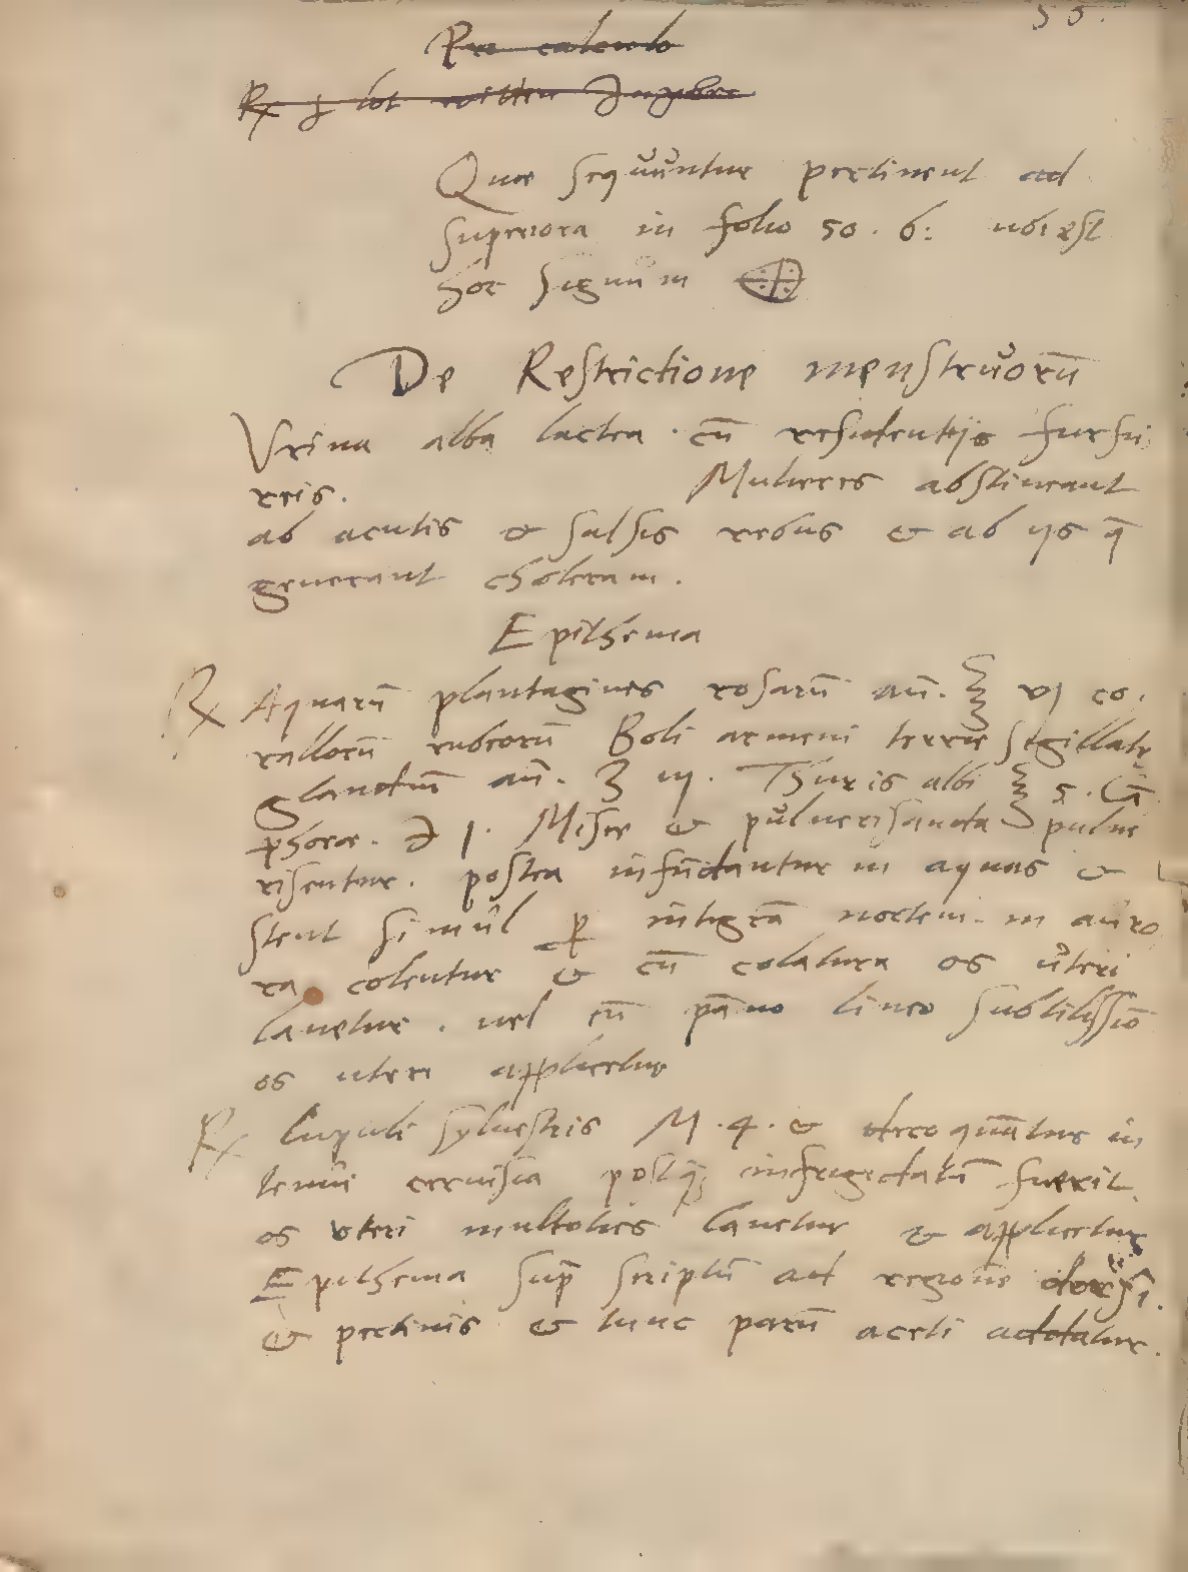 56.
Pro calculo
℞ ʒ lot
Quae sequuntur pertinent ad
superiora in folio 50. b: ubi est
hoc signum
De Restrictione menstruorū
Vrina alba lactea. cū residentijs furfu
reis. Mulieres abstineant
ab acutis & salsis rebus & ab ijs q̄
generant choleram.
Epithema
℞ Aquarū plantagines rosarū an̄. ℥ vj co.
rallorū rubeorū Boli armeni terrae sigillate
glandiū an̄. ʒ ij. Thuris albi ʒ s. Cā
phorae. ℈ j. Misce & pulverisanda pulve
risentur. postea infūdantur in aquas &
stent simul ꝑ integrā noctem. in auro
ra colentur & cū colatura os uteri
lavetur. vel cū pāno lineo subtilissio
os uteri applicetur
℞ Lupuli sylvestris M. 4. & decoquātur in
tenui cervisia postq̄ infrigidatū fuerit
os uteri multoties lavetur & applicetur
Epithema sup̄ scriptū ad regionē dorsi.
& pectinis & tunc parū aceti addatur.